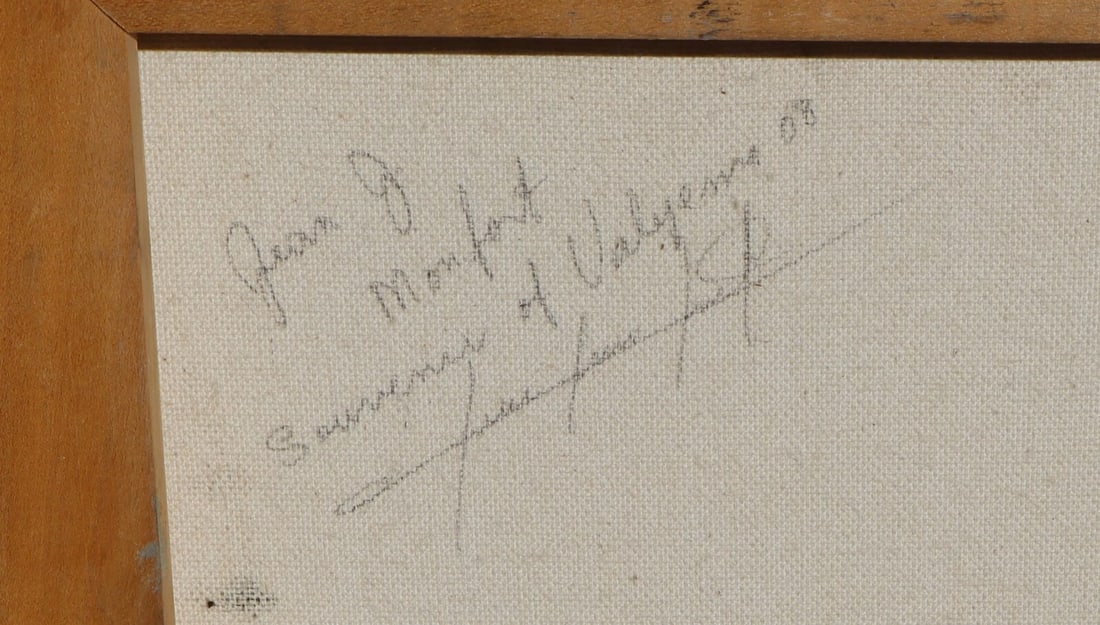 Jean D
Monfort
Souvenir of Valyermo 08